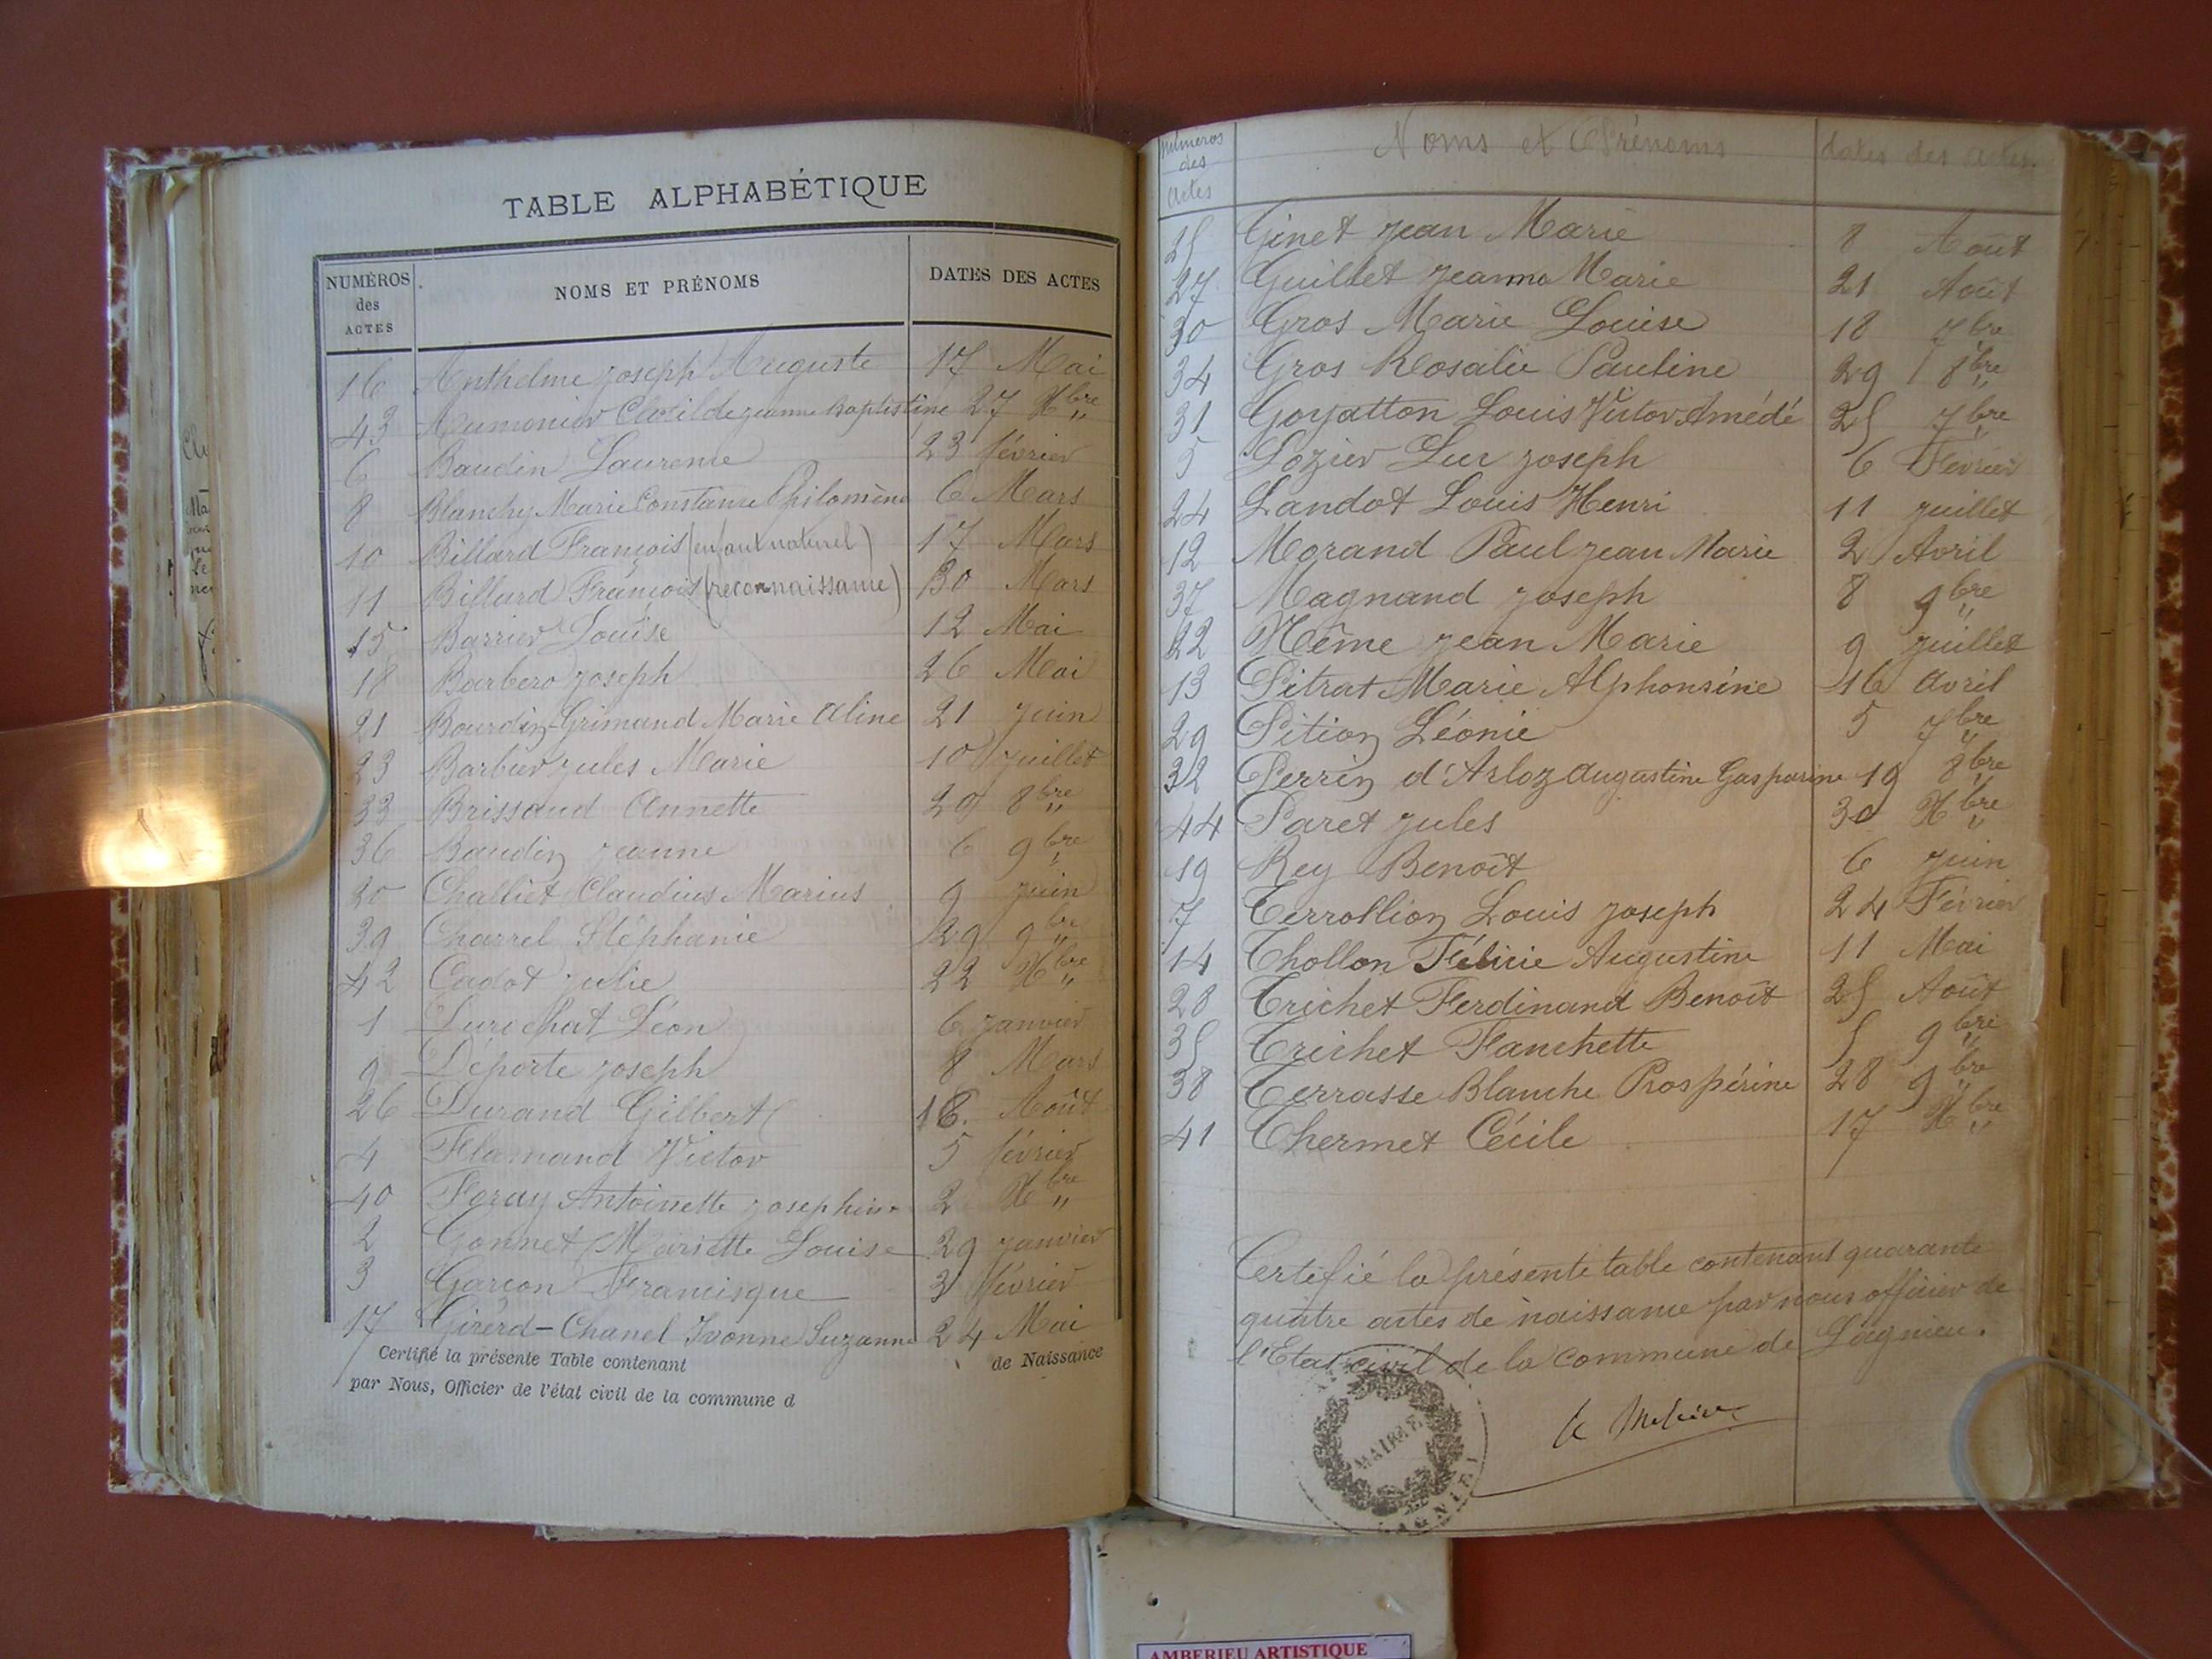 TABLE ALPHABÉTIQUE
NUMÉROS des ACTES NOMS ET PRÉNOMS DATES DES ACTES
16 Anthelme Joseph Auguste 17 Mai
43 Aumonier Clotilde Jeanne Baptistine 27 Xbre
6 Baudin Laurence 23 février
8 Blanchy Marie Constance Philomène 6 Mars
10 Billard François (enfant naturel) 17 Mars
11 Billard François (reconnaissance) 30 Mars
15 Barrier Louise 12 Mai
18 Barbero Joseph 26 Mai
21 Bourdin-Grimaud Marie Aline 21 Juin
23 Barbier Jules Marie 10 Juillet
33 Brissaud Annette 29 8bre
36 Baudin Jeanne 6 9bre
20 Challiet Claudius Marius 9 Juin
39 Charrel Stéphanie 29 9bre
42 Cadot Julie 22 Xbre
1 Durochat Léon 6 Janvier
9 Déporte Joseph 8 Mars
26 Durand Gilbert 18. Août
4 Flamand Victor 5 février
40 Foray Antoinette Josephine 2 Xbre
2 Gonnet Mariette Louise 29 Janvier
3 Garçon Francisque 3 février
17 Girerd-Chanel Ivonne Suzanne 24 Mai
Certifié la présente Table contenant de Naissance
par Nous, Officier de l'état civil de la commune d
Numéros des actes Noms et Prénoms dates des actes.
25 Ginet Jean Marie 8 Août
27 Guillet Jeanne Marie 21 Août
30 Gros Marie Louise 18 7bre
34 Gros Rosalie Pauline 29 8bre
31 Goyatton Louis Victor Amédé 25 7bre
5 Lozier Luc Joseph 6 Février
24 Landot Louis Henri 11 Juillet
12 Morand Paul Jean Marie 2 Avril
37 Magnand Joseph 8 9bre
22 Même Jean Marie 9 Juillet
13 Pitrat Marie Alphonsine 16 Avril
29 Pition Léonie 5 7bre
32 Perrin d'Arloz Augustine Gasparine 19 8bre
44 Paret Jules 30 Xbre
19 Rey Benoît 6 Juin
7 Terrollion Louis Joseph 24 Février
14 Thollon Félicie Augustine 11 Mai
28 Trichet Ferdinand Benoît 25 Août
35 Trichet Fanchette 5 9bre
38 Terrasse Blanche Prospérine 28 9bre
41 Thermet Cécile 17 Xbre
Certifié la présente table contenant quarante
quatre actes de naissance par nous officier de
l'Etat civil de la commune de Lagnieu.
Le Maire
MAIRIE
LAGNIEU
AMBERIEU ARTISTIQUE